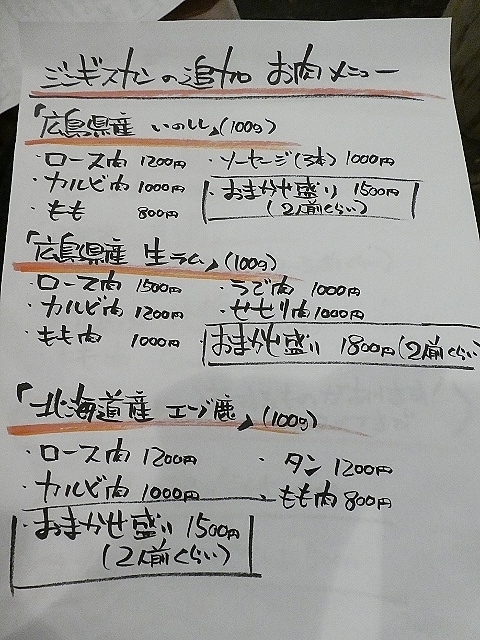 ジンギスカンの追加 お肉メニュー
「広島県産 いのしし」(100g)
・ロース肉 1200円 ・ソーセージ(3本) 1000円
・カルビ肉 1000円 おまかせ盛り 1500円
・もも 800円 (2人前くらい)
「広島県産 生ラム」(100g)
・ロース肉 1500円 ・うで肉 1000円
・カルビ肉 1200円 ・せせり肉 1000円
・もも肉 1000円 おまかせ盛り 1800円(2人前くらい)
「北海道産 エゾ鹿」(100g)
・ロース肉 1200円 ・タン 1200円
・カルビ肉 1000円 ・もも肉 800円
・おまかせ盛り 1500円
(2人前くらい)